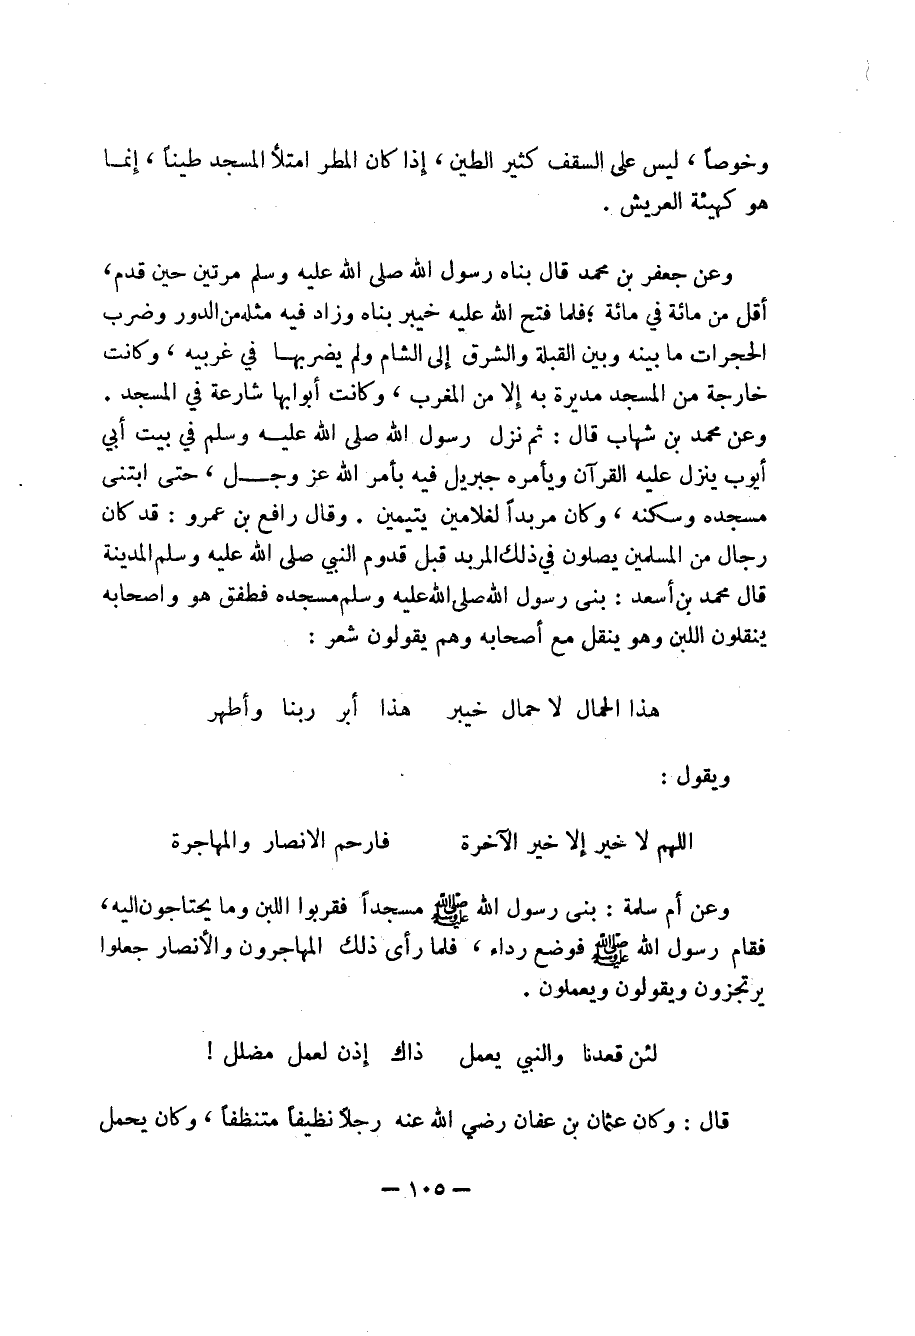 وخوصاً ، ليس على السقف كثير الطين ، إذا كان المطر امتلأ المسجد طيناً ، إنما
هو كهيئة العريش .
وعن جعفر بن محمد قال بناه رسول الله صلى الله عليه وسلم مرتين حين قدم ،
أقل من مائة في مائة ؛ فلما فتح الله عليه خيبر بناه وزاد فيه مثله من الدور وضرب
الحجرات ما بينه وبين القبلة والشرق إلى الشام ولم يضربها في غربيه ، وكانت
خارجة من المسجد مديرة به إلا من المغرب ، وكانت أبوابها شارعة في المسجد .
وعن محمد بن شهاب قال : ثم نزل رسول الله صلى الله عليه وسلم في بيت أبي
أيوب ينزل عليه القرآن ويأمره جبريل فيه بأمر الله عز وجل ، حتى ابتنى
مسجده وسكنه ، وكان مربداً لغلامين يتيمين . وقال رافع بن عمرو : قد كان
رجال من المسلمين يصلون في ذلك المربد قبل قدوم النبي صلى الله عليه وسلم المدينة
قال محمد بن أسعد : بنى رسول الله صلى الله عليه وسلم مسجده فطفق هو واصحابه
ينقلون اللبن وهو ينقل مع أصحابه وهم يقولون شعر :
هذا الحمال لا حمال خيبر هذا أبر ربنا وأطهر
ويقول :
اللهم لا خير إلا خير الآخرة فارحم الانصار والمهاجرة
وعن أم سلمة : بنى رسول الله ﷺ مسجداً فقربوا اللبن وما يحتاجون اليه ،
فقام رسول الله ﷺ فوضع رداء ، فلما رأى ذلك المهاجرون والأنصار جعلوا
يرتجزون ويقولون ويعملون .
لئن قعدنا والنبي يعمل ذاك إذن لعمل مضلل !
قال : وكان عثمان بن عفان رضي الله عنه رجلاً نظيفاً متنظفاً ، وكان يحمل
— ١٠٥ —